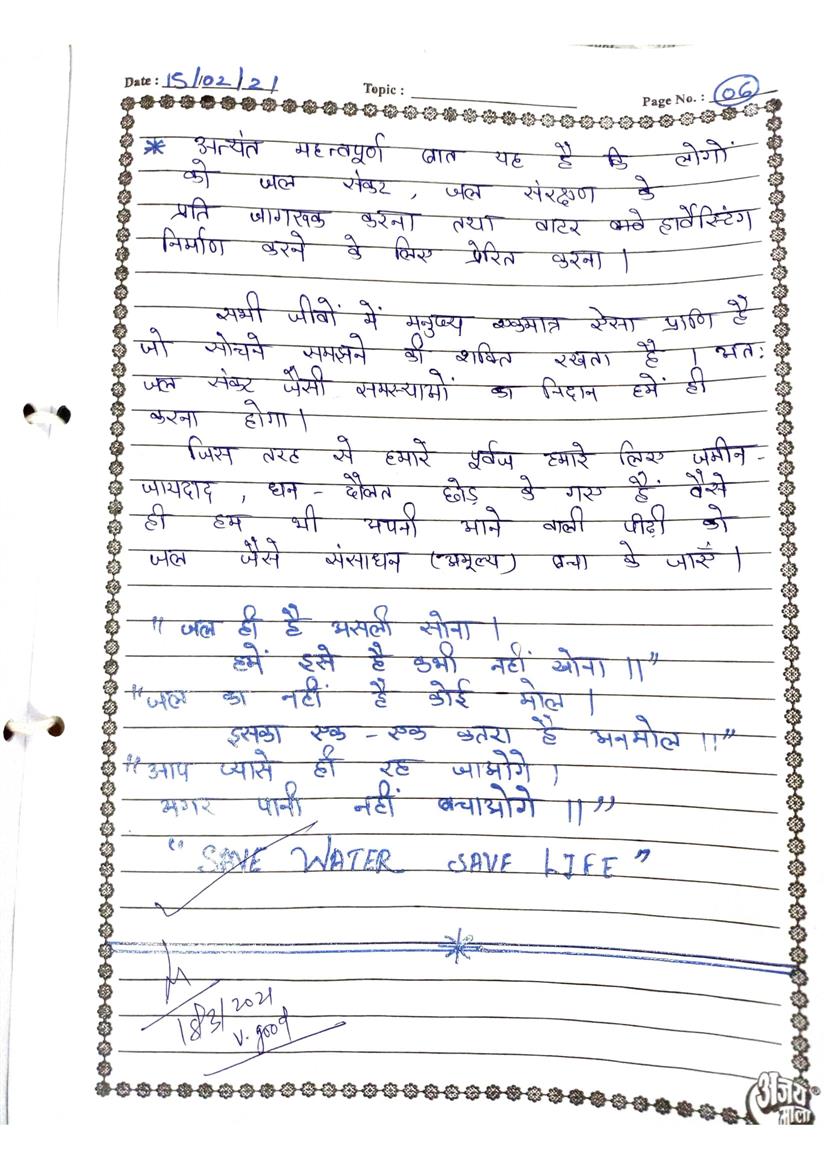 Date : 15/02/21 Topic : Page No. : 06
* अत्यंत महत्वपूर्ण बात यह है कि लोगों
को जल संकट , जल संरक्षण के
प्रति जागरूक करना तथा वाटर हार्वेस्टिंग
निर्माण करने के लिए प्रेरित करना ।
सभी जीवों में मनुष्य एकमात्र ऐसा प्राणि है
जो सोचने समझने की शक्ति रखता है । अतः
जल संकट जैसी समस्याओं का निदान हमें ही
करना होगा ।
जिस तरह से हमारे पूर्वज हमारे लिए जमीन -
जायदाद , धन - दौलत छोड़ के गए हैं वैसे
ही हम भी अपनी आने वाली पीढ़ी को
जल जैसे संसाधन (अमूल्य) बचा के जाएँ ।
" जल ही है असली सोना ।
हमें इसे है कभी नहीं खोना ।।"
"जल का नहीं है कोई मोल ।
इसका एक - एक कतरा है अनमोल ।।"
"आप प्यासे ही रह जाओगे ।
अगर पानी नहीं बचाओगे ।।"
" SAVE WATER SAVE LIFE "
18/3/2021
v. good
अजय
माला